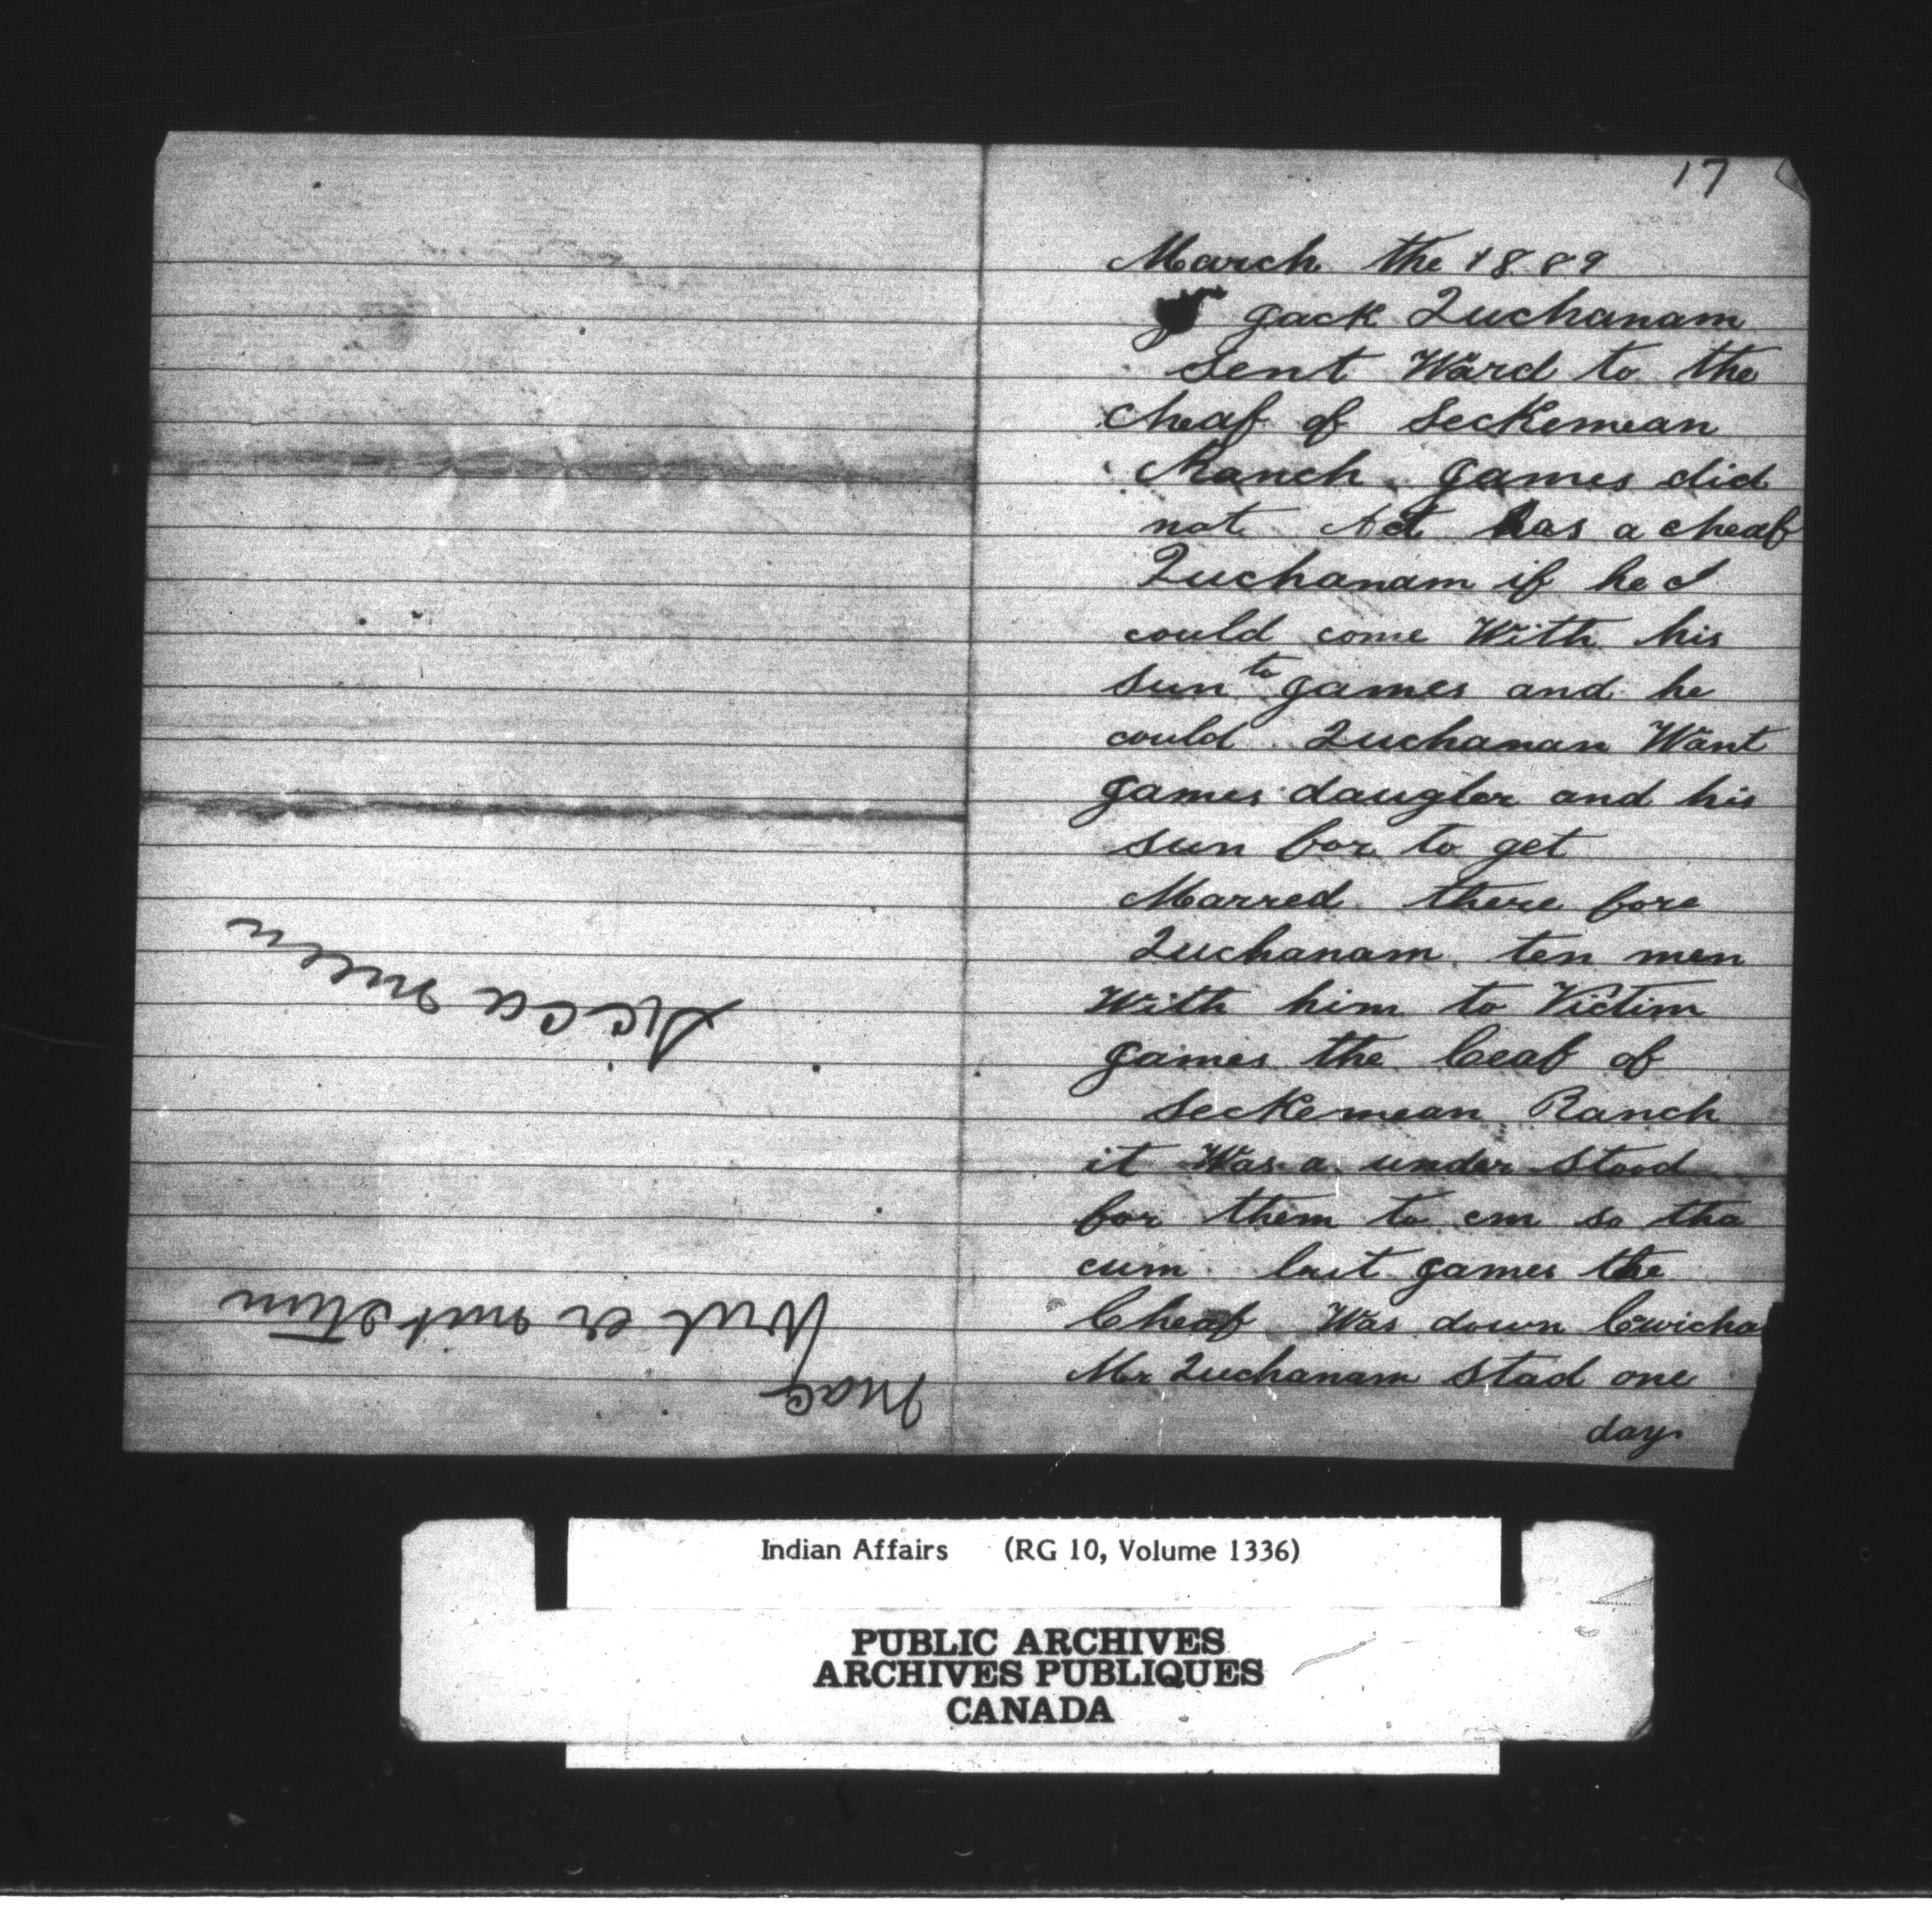 17
March the 1889
Jack Quchanam
sent Ward to the
cheaf of Seckemean
Ranch James did
not Act has a cheaf
Quchanam if he I
could come With his
sun to James and he
could Quchanan Want
James daugter and his
sun for to get
Marred there fore
Quchanam ten men
With him to Victim
James the Ceaf of
Seckemean Ranch
it Was a under stood
for them to cm so tha
cum but James the
Cheaf Was down Cowicha
Mr Quchanam stad one
day
Indian Affairs (RG 10, Volume 1336)
PUBLIC ARCHIVES
ARCHIVES PUBLIQUES
CANADA